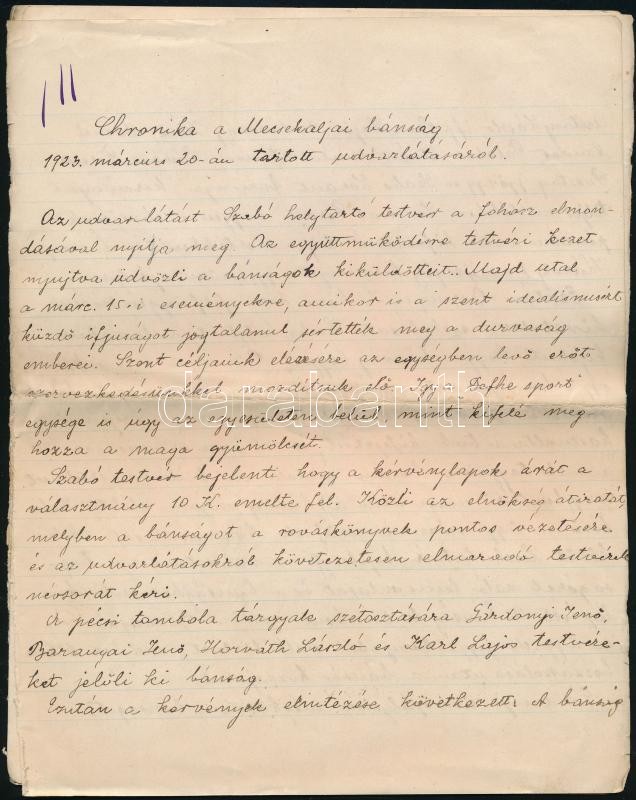 Chronika a Mecsekaljai bánság
1923. március 20-án tartott udvarlátásáról.
Az udvarlátást Szabó helytartó testvér a fohász elmon-
dásával nyitja meg. Az együttműködésre testvéri kezet
nyujtva üdvözli a bánságok kiküldötteit. Majd utal
a márc. 15.-i eseményekre, amikor is a szent idealismusért
küzdő ifjuságot jogtalanul sértették meg a durvaság
emberei. Szent céljaink elérésére az egységben levő erőt
szervezkedésünkkel mozdítjuk elő. Igy a Defhe sport
egysége is úgy az egyesületen belül mint kifelé meg-
hozza a maga gyümölcsét.
Szabó testvér bejelenti hogy a kérvénylapok árát a
választmány 10 K. emelte fel. Közli az elnökség átiratát,
melyben a bánságot a rováskönyvek pontos vezetésére
és az udvarlátásokról következetesen elmaradó testvérek
névsorát kéri.
A pécsi tombola tárgyak szétosztására Gárdonyi Jenő,
Baranyai Jenő, Horváth László és Karl Lajos testvére-
ket jelöli ki bánság.
Ezután a kérvények elintézése következett. A bánság
darabanth